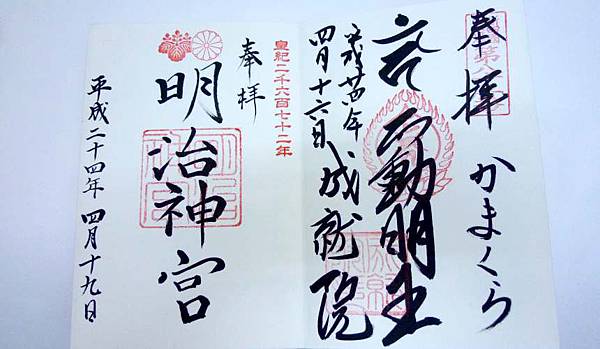 奉拝 かまくら
不動明王
平成廿四年
四月十六日 成就院
皇紀二千六百七十二年
奉拝
明治神宮
平成二十四年 四月十九日